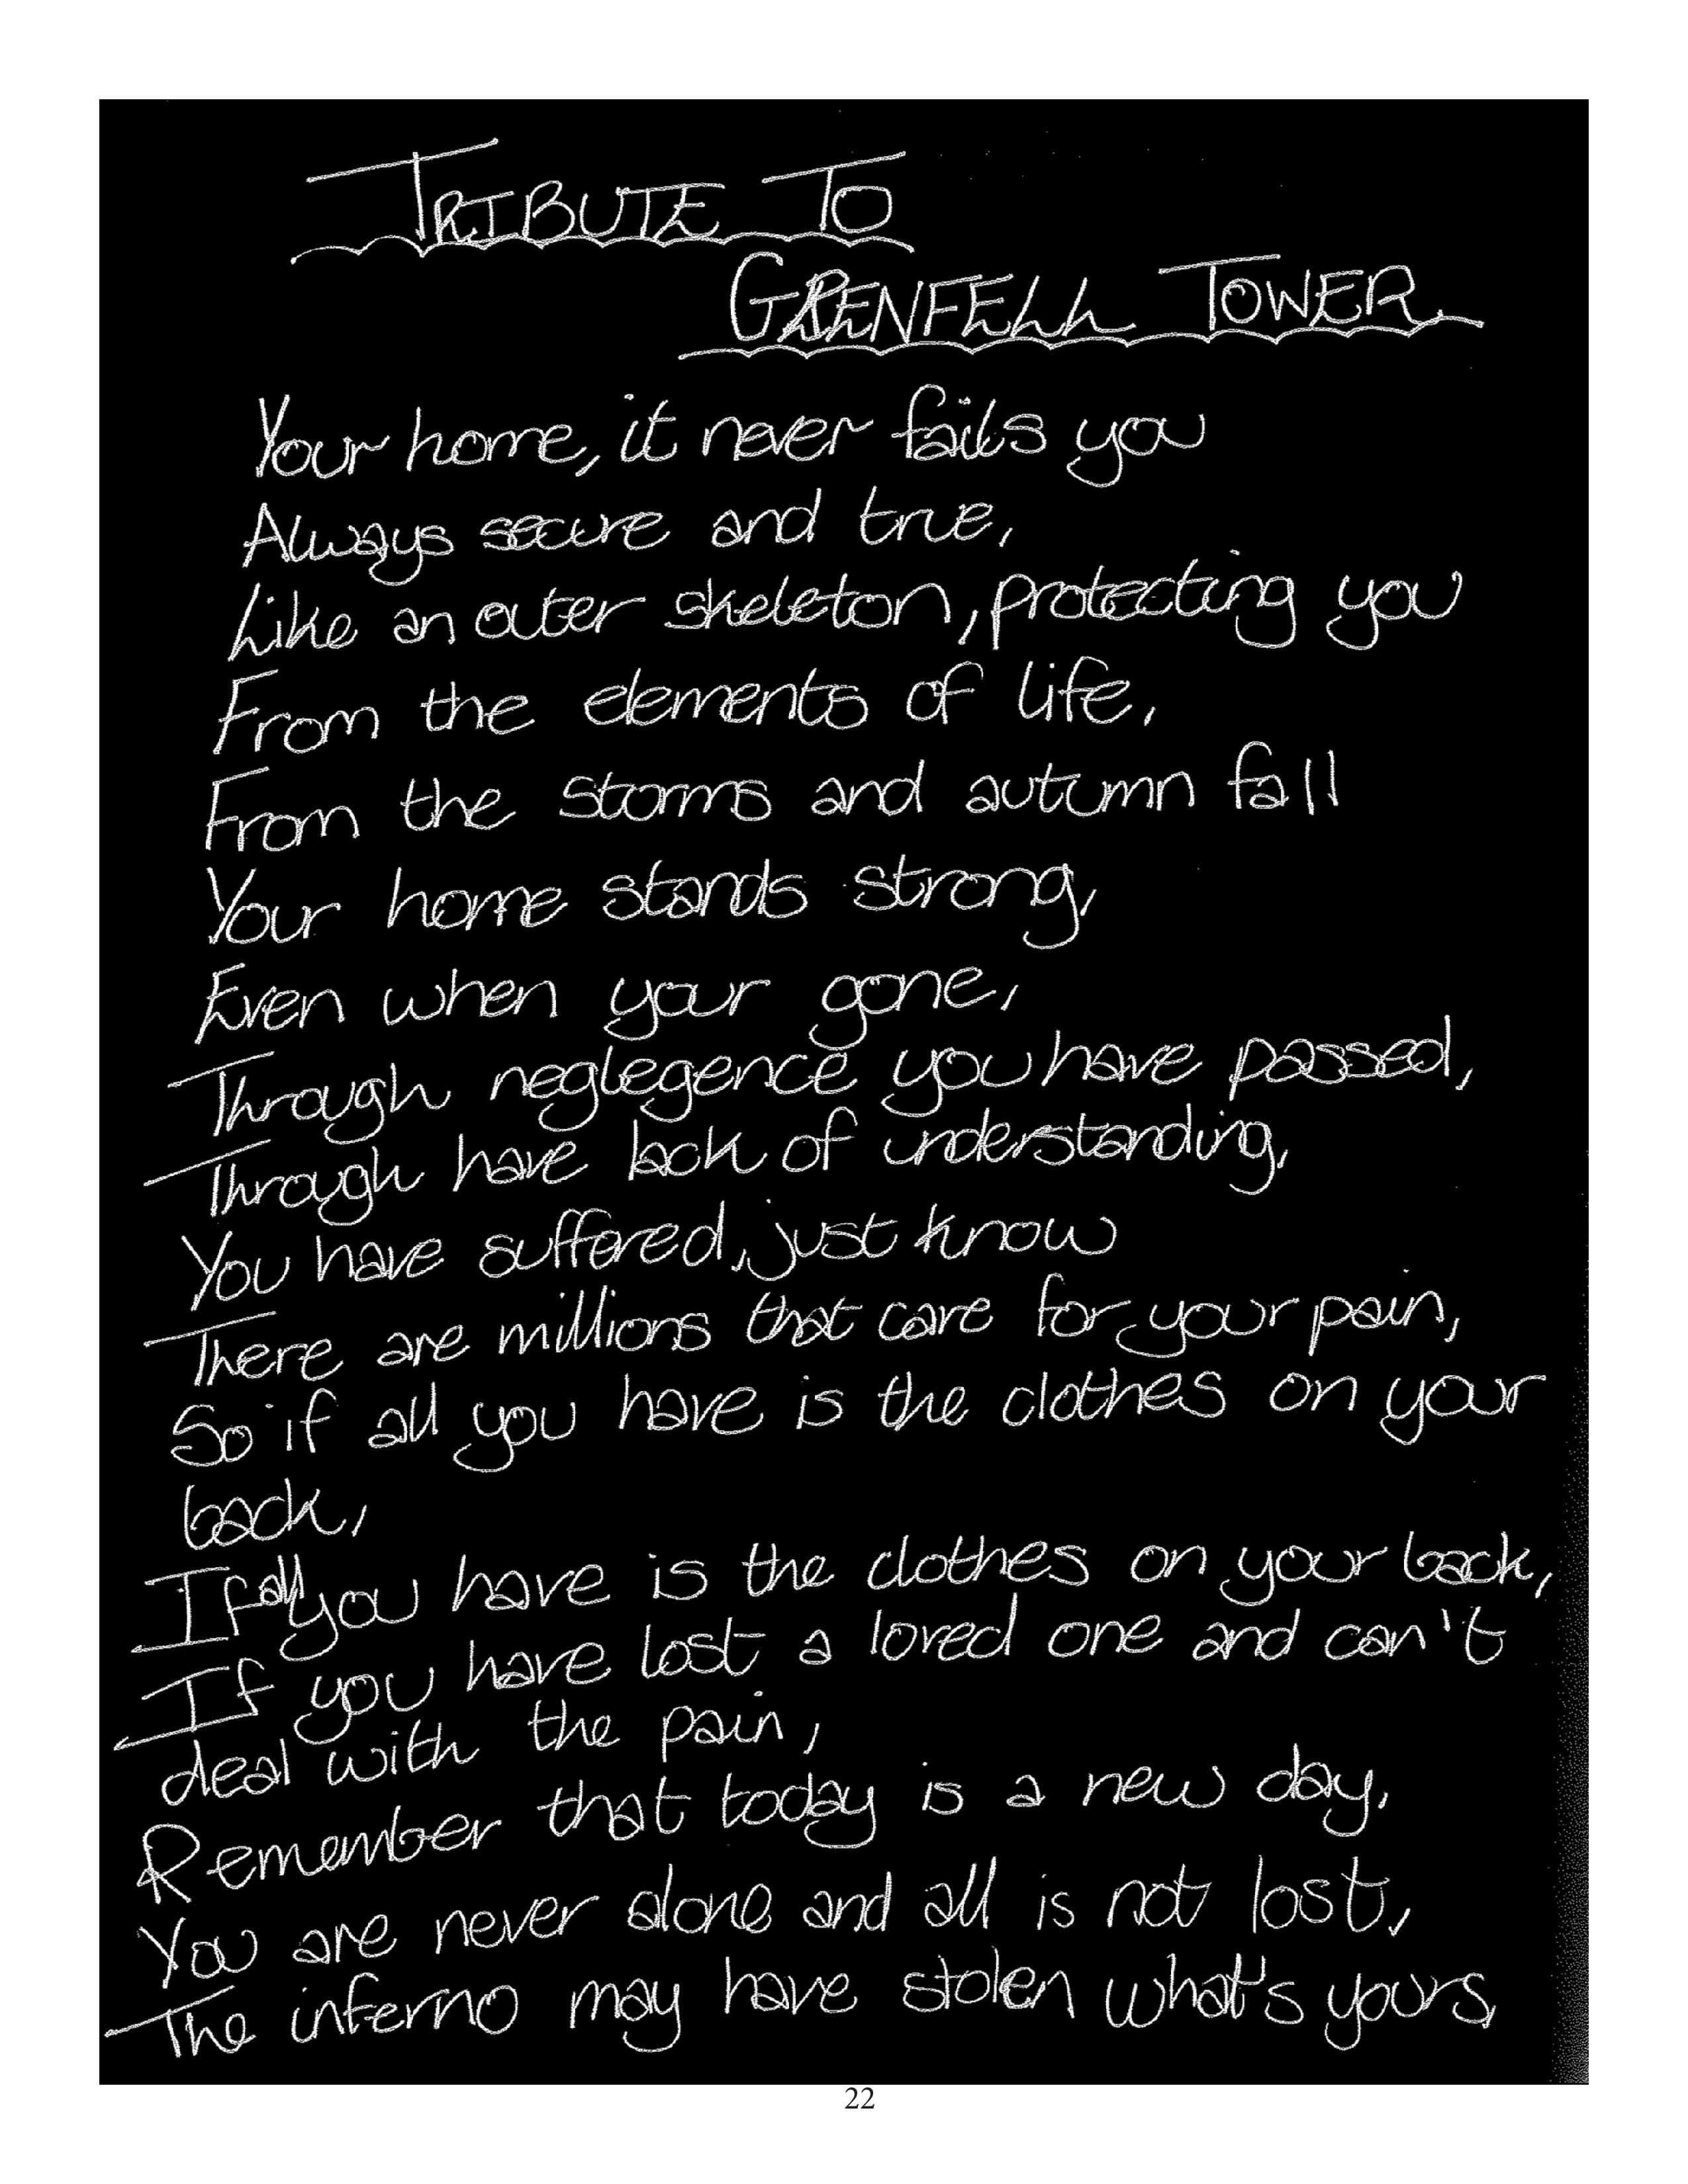 TRIBUTE TO
GRENFELL TOWER.
Your home, it never fails you
Always secure and true,
Like an outer skeleton, protecting you
From the elements of life,
From the storms and autumn fall
Your home stands strong,
Even when your gone,
Through neglegence you have passed,
Through have lack of understanding,
You have suffered, just know
There are millions that care for your pain,
So if all you have is the clothes on your
back,
If all you have is the clothes on your back,
If you have lost a loved one and can't
deal with the pain,
Remember that today is a new day,
You are never alone and all is not lost,
The inferno may have stolen what's yours,
22